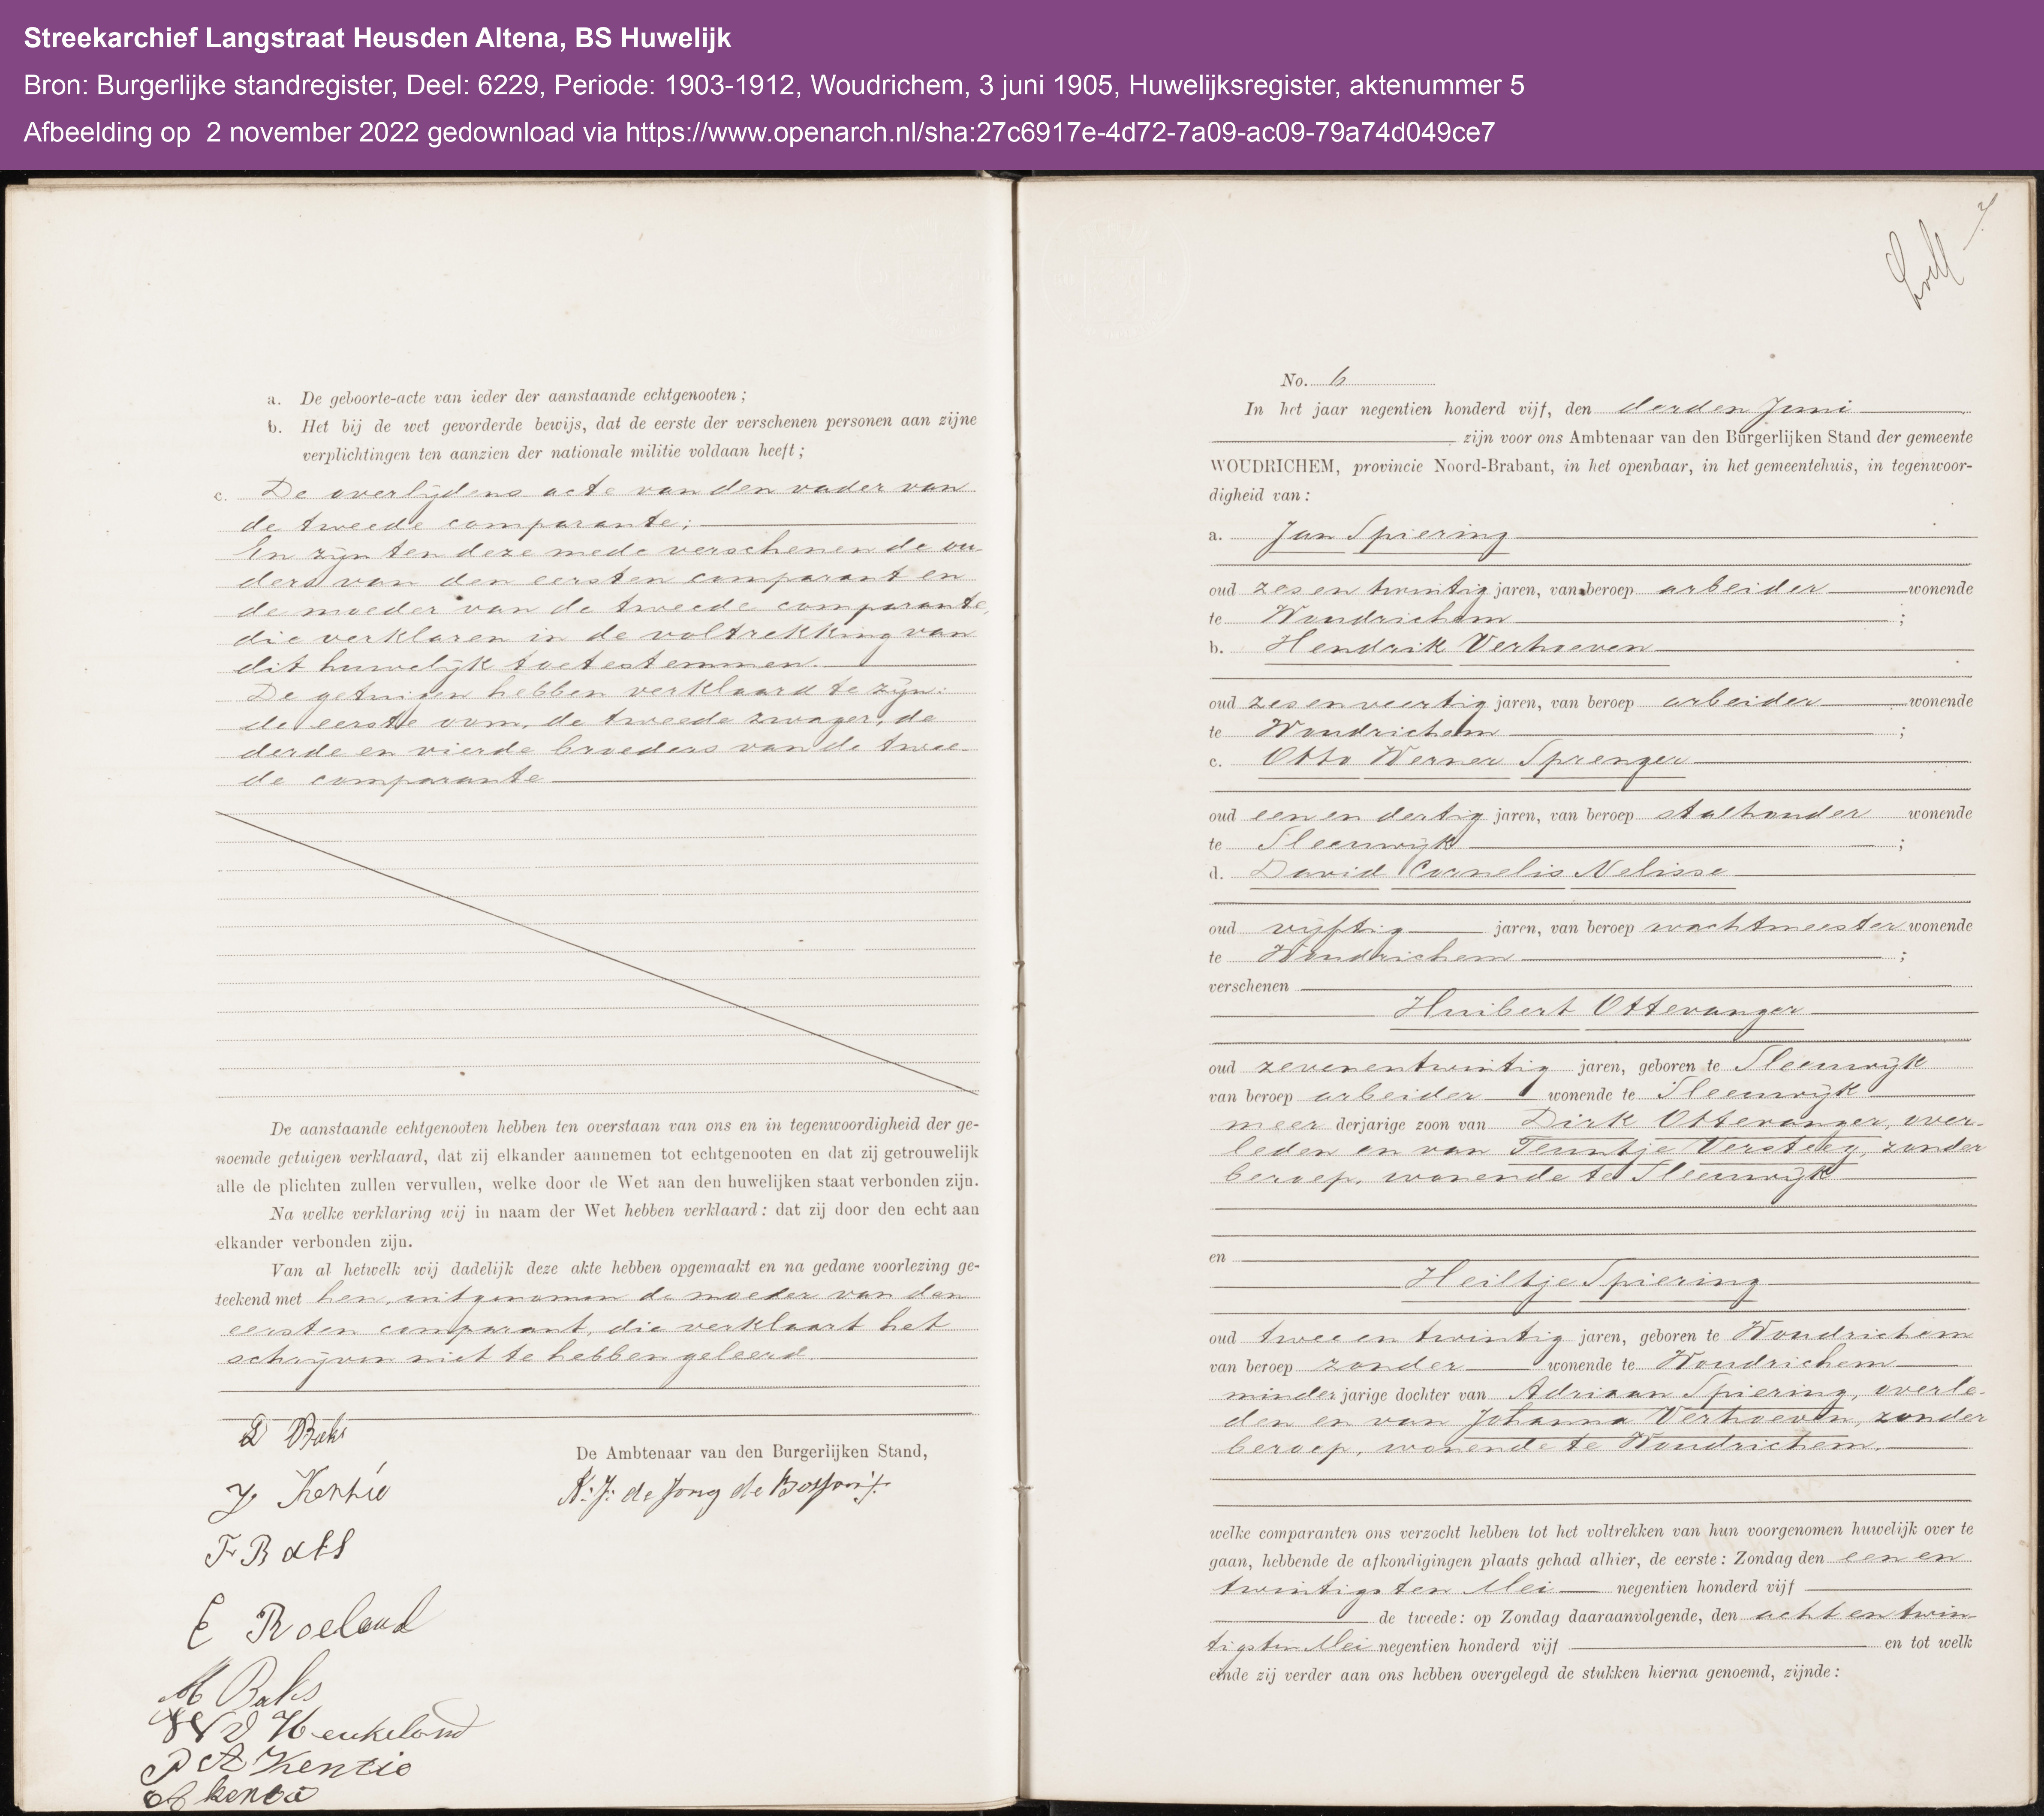 Streekarchief Langstraat Heusden Altena, BS Huwelijk
Bron: Burgerlijke standregister, Deel: 6229, Periode: 1903-1912, Woudrichem, 3 juni 1905, Huwelijksregister, aktenummer 5
Afbeelding op 2 november 2022 gedownload via https://www.openarch.nl/sha:27c6917e-4d72-7a09-ac09-79a74d049ce7
a. De geboorte-acte van ieder der aanstaande echtgenooten;
b. Het bij de wet gevorderde bewijs, dat de eerste der verschenen personen aan zijne
verplichtingen ten aanzien der nationale militie voldaan heeft;
c. De overlijdens acte van den vader van
de tweede comparante;
En zijn ten deze mede verschenen de ou-
ders van den eersten comparant en
de moeder van de tweede comparante,
die verklaren in de voltrekking van
dit huwelijk toetestemmen.
De getuigen hebben verklaard te zijn:
de eerste oom, de tweede zwager, de
derde en vierde broeders van de twee-
de comparante
De aanstaande echtgenooten hebben ten overstaan van ons en in tegenwoordigheid der ge-
noemde getuigen verklaard, dat zij elkander aannemen tot echtgenooten en dat zij getrouwelijk
alle de plichten zullen vervullen, welke door de Wet aan den huwelijken staat verbonden zijn.
Na welke verklaring wij in naam der Wet hebben verklaard: dat zij door den echt aan
elkander verbonden zijn.
Van al hetwelk wij dadelijk deze akte hebben opgemaakt en na gedane voorlezing ge-
teekend met hen, uitgenomen de moeder van den
eersten comparant, die verklaart het
schrijven niet te hebben geleerd.
D Baks
De Ambtenaar van den Burgerlijken Stand,
J Kentie
K. J. de Jong de
F Baks
E Roeland
M Baks
V Heukelom
P A Kentie
A kentie
7
No. 6
In het jaar negentien honderd vijf, den derden Juni
zijn voor ons Ambtenaar van den Burgerlijken Stand der gemeente
WOUDRICHEM, provincie Noord-Brabant, in het openbaar, in het gemeentehuis, in tegenwoor-
digheid van:
a. Jan Spiering
oud zes en twintig jaren, van beroep arbeider wonende
te Woudrichem ;
b. Hendrik Verhoeven
oud zesenveertig jaren, van beroep arbeider wonende
te Woudrichem ;
c. Otto Werner Sprenger
oud een en dertig jaren, van beroep stalhouder wonende
te Sleeuwijk ;
d. David Cornelis Nelisse
oud vijftig jaren, van beroep wachtmeester wonende
te Woudrichem ;
verschenen
Huibert Ottevanger
oud zevenentwintig jaren, geboren te Sleeuwijk
van beroep arbeider wonende te Sleeuwijk
meer derjarige zoon van Dirk Ottevanger, over-
leden en van Teuntje Versteeg, zonder
beroep, wonende te Sleeuwijk
en
Heiltje Spiering
oud twee en twintig jaren, geboren te Woudrichem
van beroep zonder wonende te Woudrichem
minder jarige dochter van Adriaan Spiering, overle-
den en van Johanna Verhoeven, zonder
beroep, wonende te Woudrichem.
welke comparanten ons verzocht hebben tot het voltrekken van hun voorgenomen huwelijk over te
gaan, hebbende de afkondigingen plaats gehad alhier, de eerste: Zondag den een en
twintigsten Mei negentien honderd vijf
de tweede: op Zondag daaraanvolgende, den acht en twin-
tigsten Mei negentien honderd vijf en tot welk
einde zij verder aan ons hebben overgelegd de stukken hierna genoemd, zijnde: